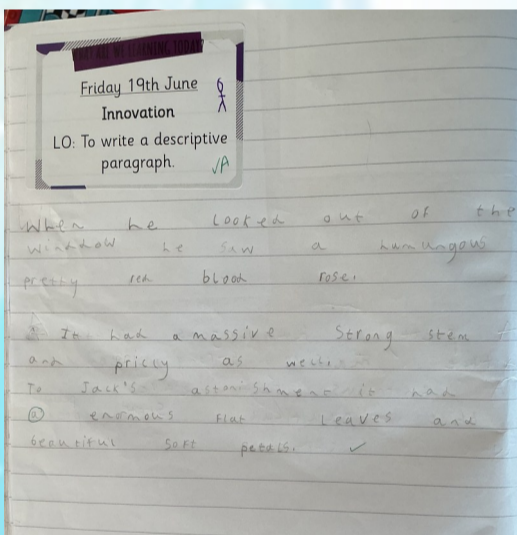 WHAT ARE WE LEARNING TODAY?
Friday 19th June
Innovation
LO: To write a descriptive
paragraph.
When he looked out of the
winddow he saw a humungous
pretty red blood rose.
It had a massive strong stem
and priccy as well.
To Jack's astonishment it had
a enomous flat leaves and
beautiful soft petals.